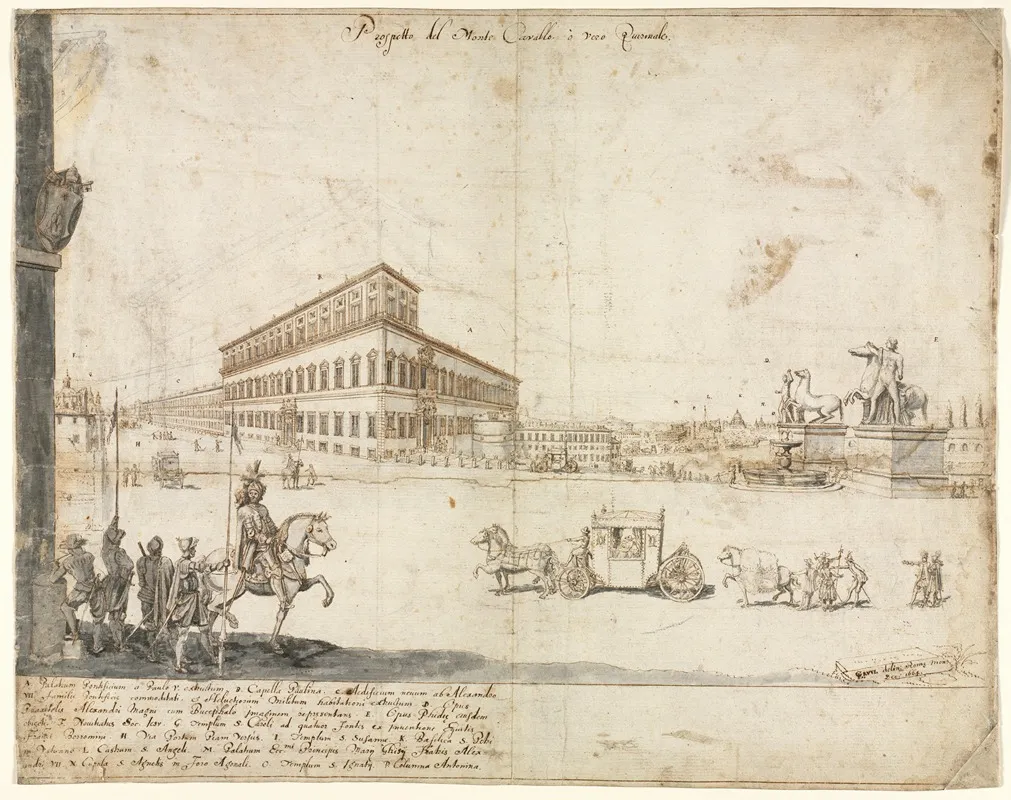 Prospetto del Monte Cavallo ò vero Quirinale.
B
A
E
D
I
C
H
M P L
N
A Palatium Pontificium a Paulo V. extructum, B. Capella Paulina. C Aedificium novum ab Alexandro
VII familie Pontificie commoditati, et Helvetiorum Militum habitationi extructum D. Opus
Praxitelis Alexandri Magni cum Bucephalo imaginem representans E. Opus Phidie eiusdem
F. G. Templum S. Caroli ad quatuor Fontes ex inventione Equitis
Fran Borromini H Via Portam Piam Versus. I. Templum S. Susanne K. Basilica S. Petri
in Vaticano L Castrum S. Angeli M Palatium Principis Mary Ghisij Fratris Alex
andri VII. N Cupola S. Agnetis in Foro Agonali. O. Templum S. Ignatij. P Columna Antonina.
delin
Dec. 1664